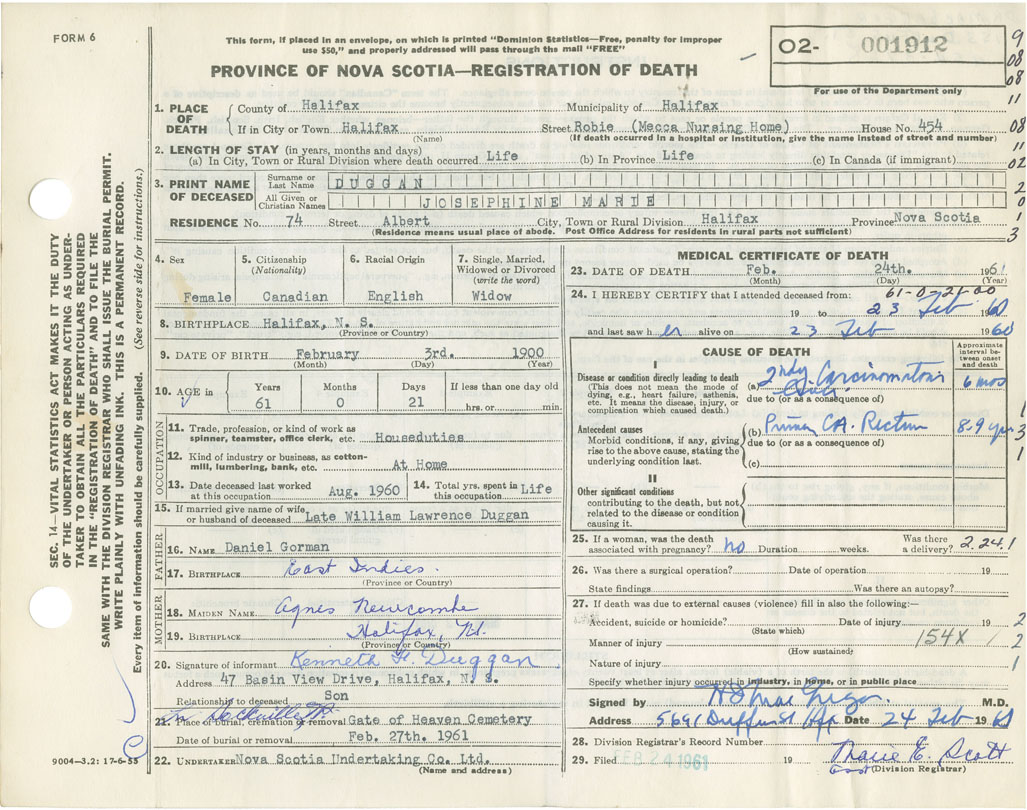 FORM 6
This form, if placed in an envelope, on which is printed "Dominion Statistics—Free, penalty for improper
use $50," and properly addressed will pass through the mail "FREE"
PROVINCE OF NOVA SCOTIA—REGISTRATION OF DEATH
02- 001912
For use of the Department only
9
08
08
11
08
11
02
2
0
1
3
SEC. 14—VITAL STATISTICS ACT MAKES IT THE DUTY
OF THE UNDERTAKER OR PERSON ACTING AS UNDER-
TAKER TO OBTAIN ALL THE PARTICULARS REQUIRED
IN THE "REGISTRATION OF DEATH" AND TO FILE THE
SAME WITH THE DIVISION REGISTRAR WHO SHALL ISSUE THE BURIAL PERMIT.
WRITE PLAINLY WITH UNFADING INK. THIS IS A PERMANENT RECORD.
Every item of information should be carefully supplied. (See reverse side for instructions.)
1. PLACE OF DEATH County of Halifax Municipality of Halifax
If in City or Town Halifax Street Robie (Mecca Nursing Home) House No. 454
(Name) (If death occurred in a hospital or institution, give the name instead of street and number)
2. LENGTH OF STAY (in years, months and days)
(a) In City, Town or Rural Division where death occurred Life (b) In Province Life (c) In Canada (if immigrant)
3. PRINT NAME OF DECEASED Surname or Last Name DUGGAN
All Given or Christian Names JOSEPHINE MARIE
RESIDENCE No. 74 Street Albert City, Town or Rural Division Halifax Province Nova Scotia
(Residence means usual place of abode. Post Office Address for residents in rural parts not sufficient)
4. Sex Female
5. Citizenship (Nationality) Canadian
6. Racial Origin English
7. Single, Married, Widowed or Divorced (write the word) Widow
8. BIRTHPLACE Halifax, N. S.
(Province or Country)
9. DATE OF BIRTH February 3rd. 1900
(Month) (Day) (Year)
10. AGE in Years Months Days If less than one day old
61 0 21 hrs. or min.
OCCUPATION
11. Trade, profession, or kind of work as
spinner, teamster, office clerk, etc. Houseduties
12. Kind of industry or business, as cotton-
mill, lumbering, bank, etc. At Home
13. Date deceased last worked at this occupation Aug. 1960 14. Total yrs. spent in this occupation Life
15. If married give name of wife
or husband of deceased Late William Lawrence Duggan
FATHER
16. NAME Daniel Gorman
17. BIRTHPLACE East Indies.
(Province or Country)
MOTHER
18. MAIDEN NAME Agnes Newcombe
19. BIRTHPLACE Halifax, NS.
(Province or Country)
20. Signature of informant Kenneth H. Duggan
Address 47 Basin View Drive, Halifax, N. S.
Relationship to deceased Son
21. Place of burial, cremation or removal Gate of Heaven Cemetery
Date of burial or removal Feb. 27th. 1961
22. UNDERTAKER Nova Scotia Undertaking Co. Ltd.
(Name and address)
9004—3.2: 17-6-55
MEDICAL CERTIFICATE OF DEATH
23. DATE OF DEATH Feb. 24th. 1961
(Month) (Day) (Year)
24. I HEREBY CERTIFY that I attended deceased from: 61-0-21-00
19 to 23 Feb 1960
and last saw her alive on 23 Feb 1960
CAUSE OF DEATH
Approximate interval between onset and death
I
Disease or condition directly leading to death
(This does not mean the mode of
dying, e.g., heart failure, asthenia,
etc. It means the disease, injury, or
complication which caused death.)
(a) 2ndy Carcinomatosis 6 mos
due to (or as a consequence of)
Antecedent causes
Morbid conditions, if any, giving
rise to the above cause, stating the
underlying condition last.
(b) Primary CA. Rectum 8.9 yrs
due to (or as a consequence of)
(c)
1
3
1
II
Other significant conditions
contributing to the death, but not
related to the disease or condition
causing it.
25. If a woman, was the death
associated with pregnancy? no Duration weeks. Was there a delivery? 2.24.1
26. Was there a surgical operation? Date of operation 19
State findings Was there an autopsy?
27. If death was due to external causes (violence) fill in also the following:—
Accident, suicide or homicide? Date of injury 19 2
(State which)
Manner of injury 154X 2
(How sustained)
Nature of injury 1
Specify whether injury occurred in industry, in home, or in public place
Signed by M.D.
Address 5691 Duffus St Hfx Date 24 Feb 1961
28. Division Registrar's Record Number
29. Filed FEB 24 1961 19 Marie E. Scott
(Division Registrar)